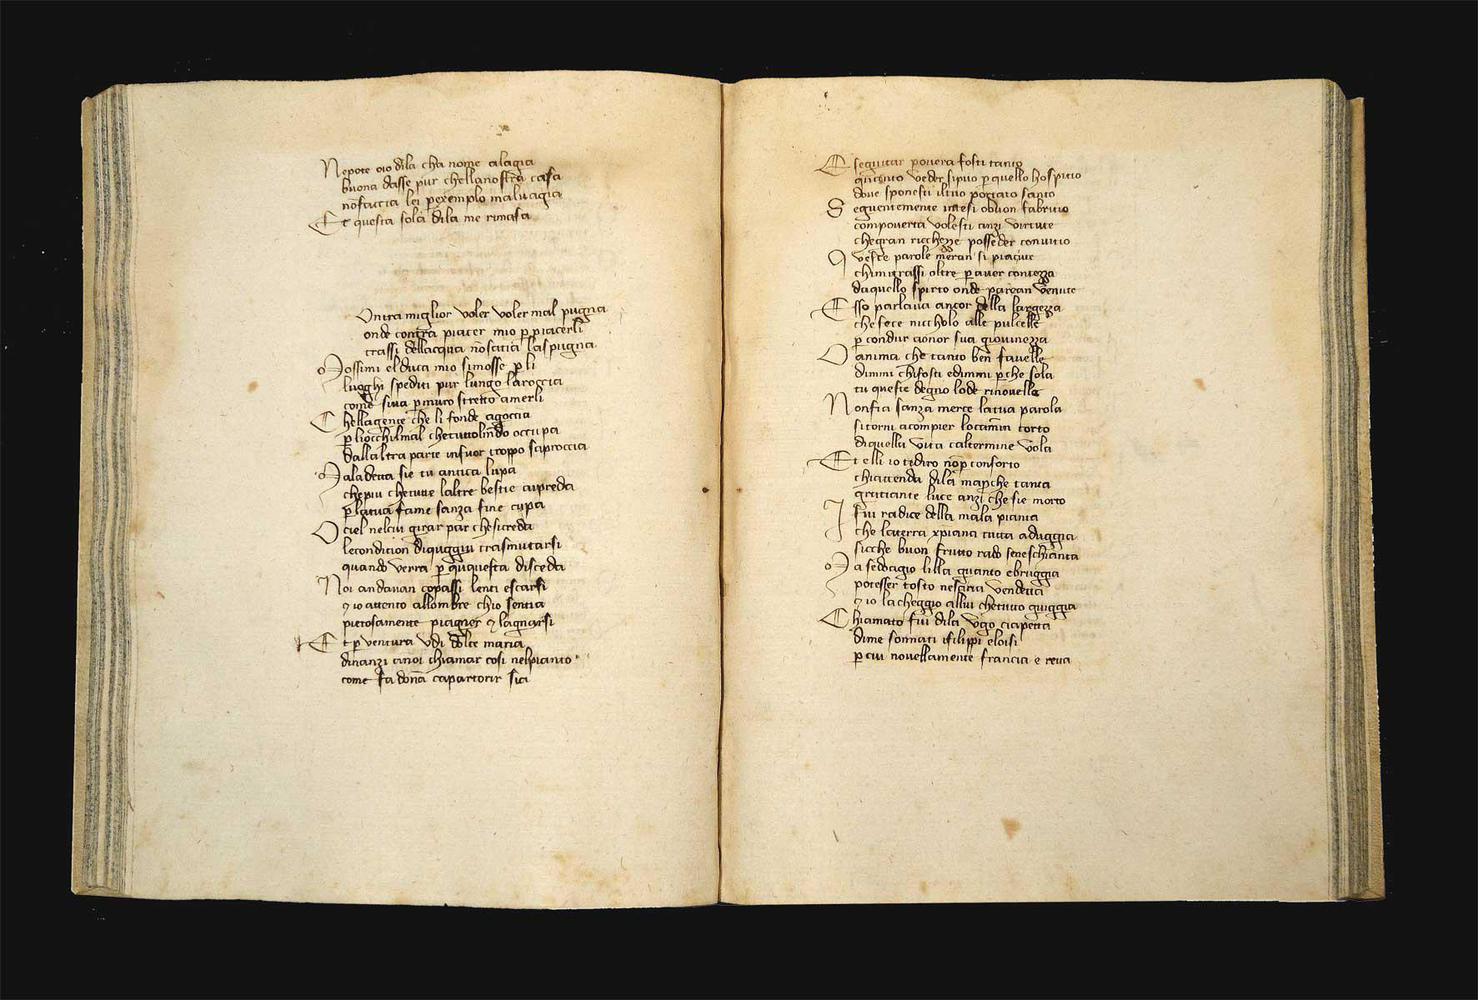 Nepote oio dila cha nome alagia
buona dasse pur chellanostra casa
nofaccia lei pexemplo malvagia
Et questa sola dila me rimasa
Ontra miglior voler voler mal pugna
onde contra piacer mio p piacerli
trassi dellacqua nosatia laspugna
Mossimi elduca mio simosse p li
luoghi spediti pur lungo laroccia
come siva pmuro stretto amerli
Chellagente che li fonde agoccia
p liocchilmal chetuttolmodo occupa
dallaltra parte infuor troppo saproccia
Maladetta sie tu antica lupa
chepiu chetutte laltre bestie aipreda
p latua fame sanza fine cupa
O ciel nelcui girar par chesicreda
lecondition diquaggiu trasmutarsi
quando verra p quiquesta disceda
Noi andavan copassi lenti escarsi
7 io attento allombre chio sentia
pietosamente piagner 7 lagnarsi
Et p ventura udi dolce maria
dinanzi anoi chiamar cosi nelpianto
come fa dona capartorir sia
E seguitar povera fosti tanto
quanto veder sipuo p quello hospitio
dove sponesti iltuo portato santo
Seguentemente intesi obuon fabritio
compoverta volesti anzi virtute
chegran richezze posseder convitio
Queste parole meran si piaciute
chimitrassi oltre p aver contezza
daquello spirto onde parean venute
Esso parlava ancor della largezza
che fece niccholo alle pulcelle
p condur aonor sua giovinezza
O anima che tanto ben favelle
dimmi chifosti edimmi pche sola
tu queste degno lode rinovelle
Nonfia sanza merce latua parola
sitorni acompier locamin corto
diquella vita calternine vola
Et elli io tediro nop conforto
chiattenda dila mapche tanta
gratiante luce anzi che sie morto
I fui radice della mala pianta
che laterra xpiana tutta aduggia
sicche buon frutto rado seneschianta
Ma sedoagio lilla guanto ebruggia
potesser tosto nesaria vendetta
7 io la cheggio allui chetutto giuggia
Chiamato fui dila ugo ciapetta
dime sonnati ifilippi eloisi
p cui novellamente francia e retta